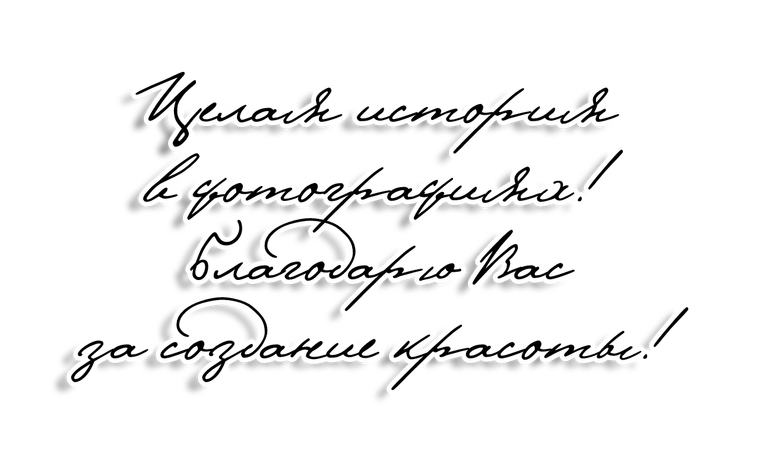 Целая история
в фотографиях!
Благодарю Вас
за создание красоты!